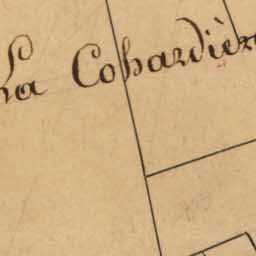 La Cohardièr